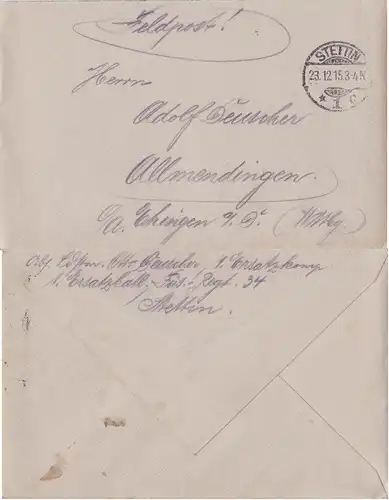 Feldpost!
STETTIN
23.12.15.3-4N
* 1 c
Herrn
Adolf Deuscher
Allmendingen.
O/A. Ehingen a/D. (Wttbg.)
Otto Deuscher 1. Ersatzkomp.
1. Ersatzbatl. Füs.-Regt. 34
Stettin.